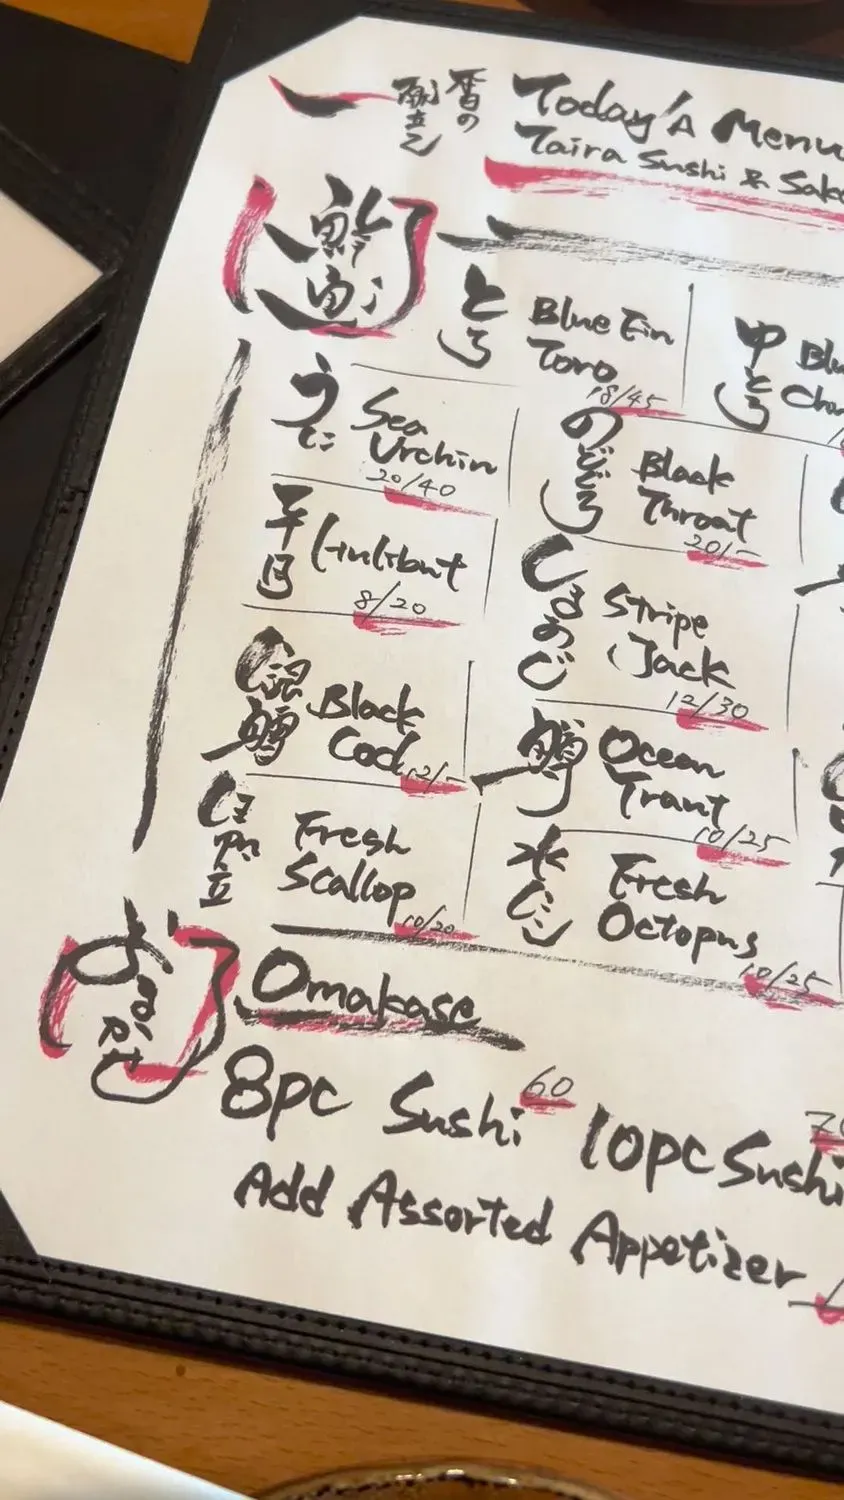 暦の
献立
Today's Menu
Taira Sushi & Sake
とろ
Blue Fin
Toro
18/45
中とろ
うに
Sea
Urchin
20/40
のどぐろ
Black
Throat
20/-
平目
Halibut
8/20
しまあじ
Stripe
Jack
12/30
銀鱈
Black
Cod
12/-
鱒
Ocean
Traut
10/25
帆立
Fresh
Scallop
10/20
水ダコ
Fresh
Octopus
10/25
おまかせ
Omakase
8pc Sushi 60
10pc Sushi
Add Assorted Appetizer